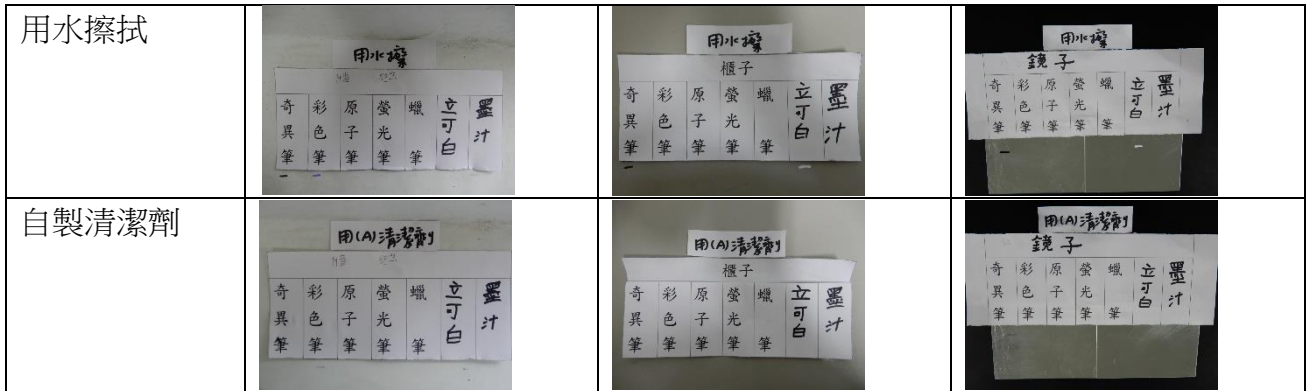 用水擦拭
用水擦
奇異筆 彩色筆 原子筆 螢光筆 蠟筆 立可白 墨汁
用水擦
櫃子
奇異筆 彩色筆 原子筆 螢光筆 蠟筆 立可白 墨汁
用水擦
鏡子
奇異筆 彩色筆 原子筆 螢光筆 蠟筆 立可白 墨汁
自製清潔劑
用(A)清潔劑
奇異筆 彩色筆 原子筆 螢光筆 蠟筆 立可白 墨汁
用(A)清潔劑
櫃子
奇異筆 彩色筆 原子筆 螢光筆 蠟筆 立可白 墨汁
用(A)清潔劑
鏡子
奇異筆 彩色筆 原子筆 螢光筆 蠟筆 立可白 墨汁